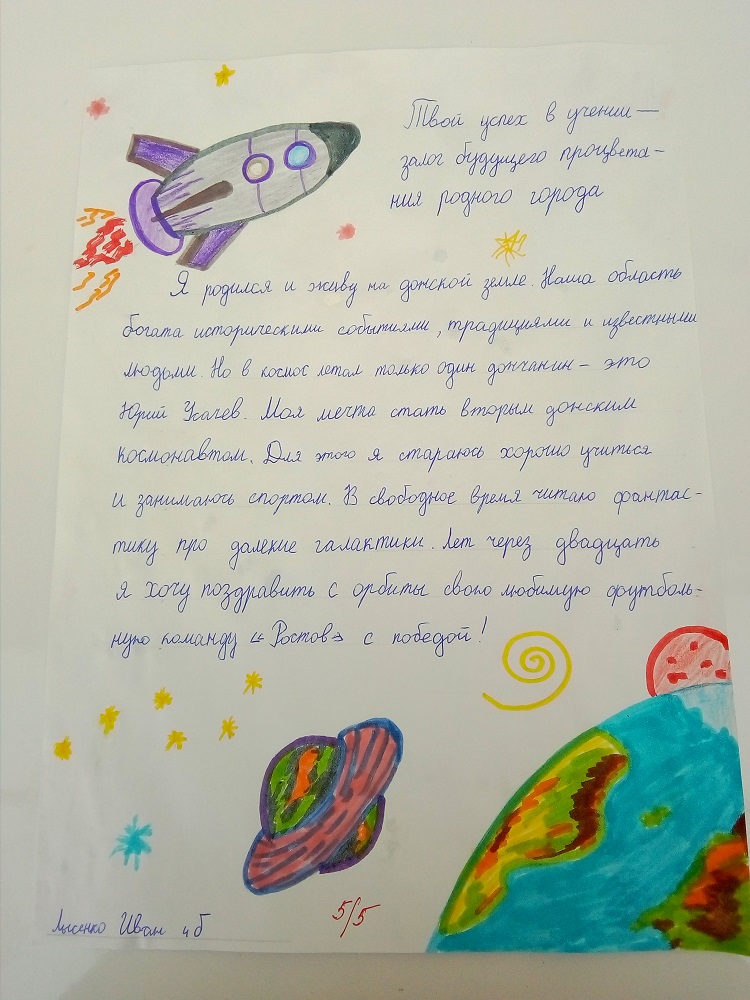 Твой успех в учении —
залог будущего процвета-
ния родного города
Я родился и живу на донской земле. Наша область
богата историческими событиями, традициями и известными
людьми. Но в космос летал только один дончанин – это
Юрий Усачев. Моя мечта стать вторым донским
космонавтом. Для этого я стараюсь хорошо учиться
и занимаюсь спортом. В свободное время читаю фантас-
тику про далекие галактики. Лет через двадцать
я хочу поздравить с орбиты свою любимую футболь-
ную команду «Ростов» с победой!
Лысенко Иван 4б
5/5